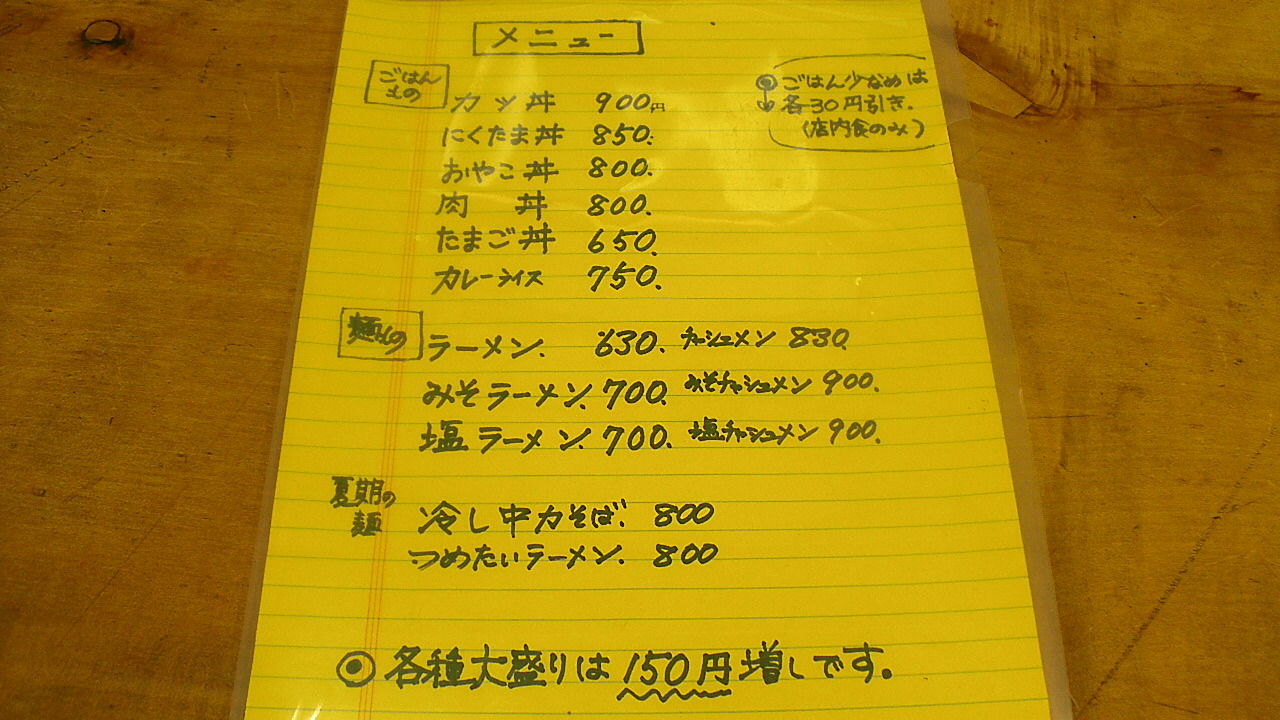 メニュー
ごはん
もの
カツ丼 900円
にくたま丼 850.
おやこ丼 800.
肉 丼 800.
たまご丼 650.
カレーライス 750.
◎ごはん少なめは
各30円引き.
(店内食のみ)
麺もの
ラーメン. 630. チャーシューメン 830.
みそラーメン. 700. みそチャシューメン 900.
塩ラーメン. 700. 塩チャシューメン 900.
夏期の
麺
冷し中力そば. 800
つめたいラーメン. 800
◎各種大盛りは150円増しです。